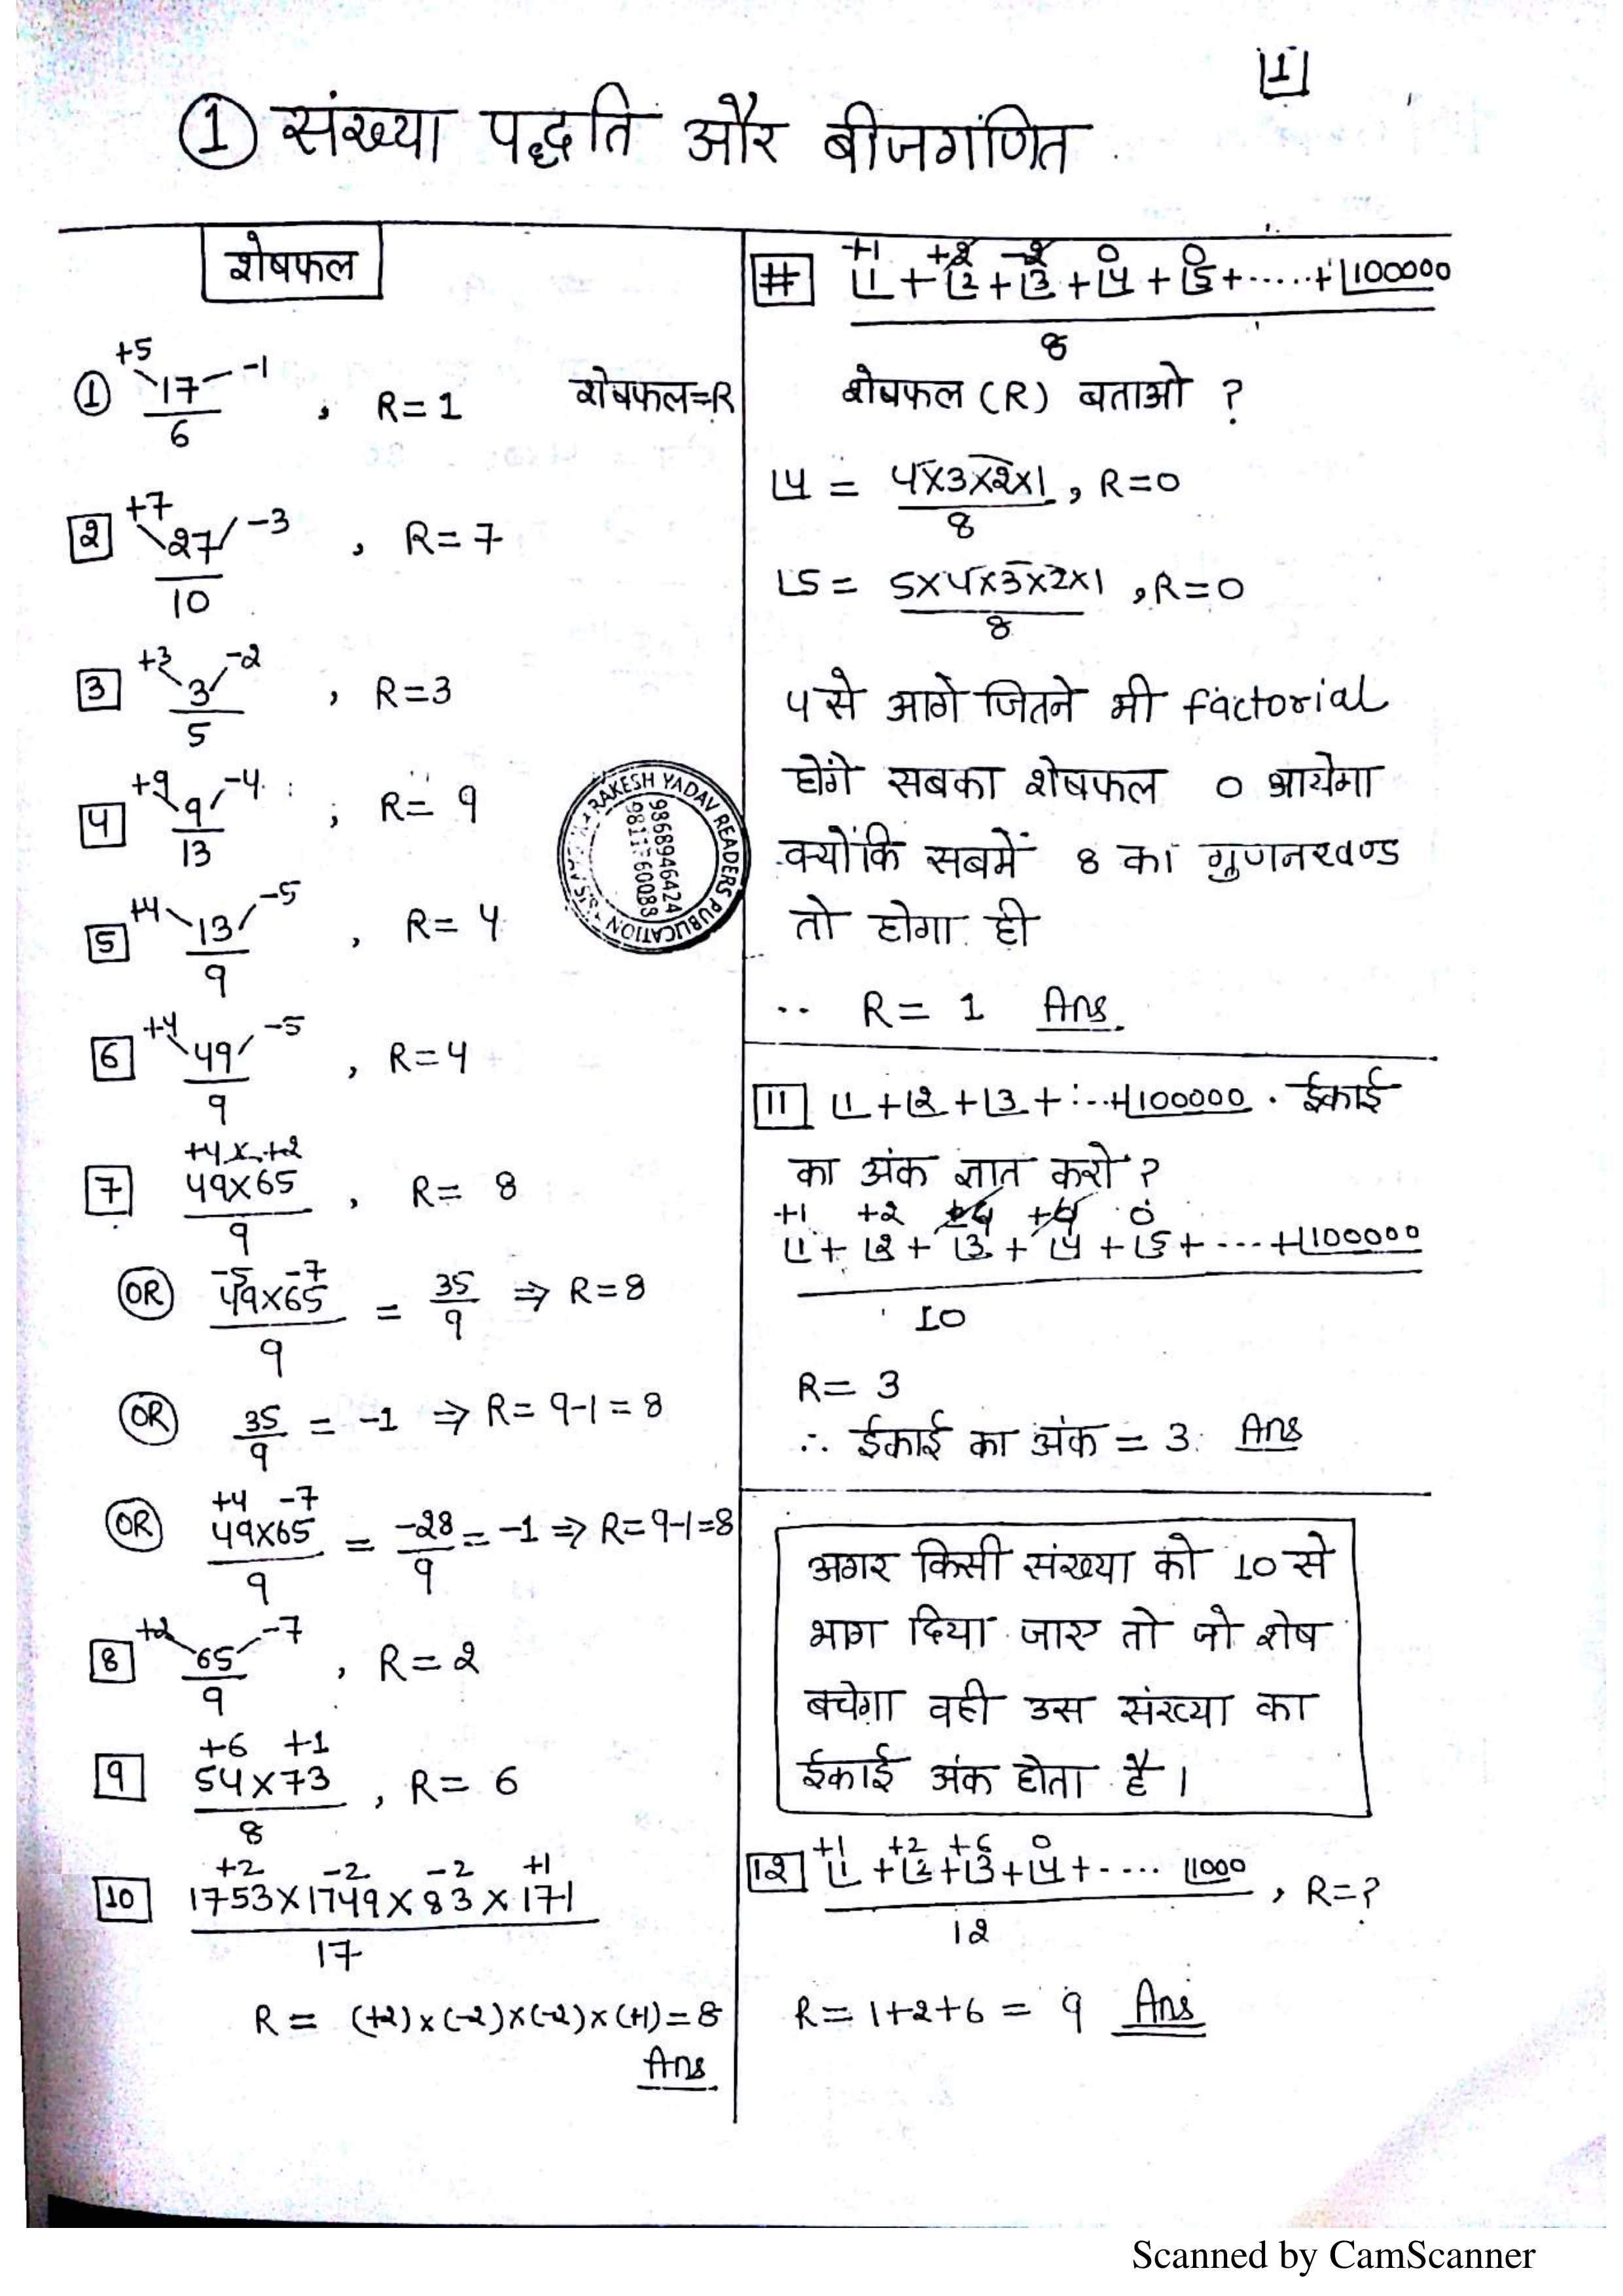 [1]
① संख्या पद्धति और बीजगणित
शेषफल
① +5 17 -1 / 6 , R=1 शेषफल=R
[2] +7 27 -3 / 10 , R=7
[3] +3 3 -2 / 5 , R=3
[4] +9 9 -4 / 13 ; R=9
[5] +4 13 -5 / 9 , R=4
[6] +4 49 -5 / 9 , R=4
+4 × +2
[7] 49×65 / 9 , R= 8
-5 -7
(OR) 49×65 / 9 = 35/9 ⇒ R=8
(OR) 35/9 = -1 ⇒ R= 9-1=8
+4 -7
(OR) 49×65 / 9 = -28/9 = -1 ⇒ R=9-1=8
[8] +2 65 -7 / 9 , R=2
+6 +1
[9] 54×73 / 8 , R= 6
+2 -2 -2 +1
[10] 1753×1749×83×171 / 17
R= (+2)×(-2)×(-2)×(+1)=8
Ans
+1 +2 -2 0 0
[#] ⌊1+⌊2+⌊3+⌊4+⌊5+.....+⌊100000 / 8
शेषफल (R) बताओ ?
⌊4 = 4×3×2×1 / 8 , R=0
⌊5 = 5×4×3×2×1 / 8 , R=0
4 से आगे जितने भी factorial
होंगे सबका शेषफल 0 आयेगा
क्योंकि सबमें 8 का गुणनखण्ड
तो होगा ही
.. R= 1 Ans.
[11] ⌊1+⌊2+⌊3+...+⌊100000 . ईकाई
का अंक ज्ञात करो ?
+1 +2 0
⌊1+⌊2+⌊3+⌊4+⌊5+....+⌊100000 / 10
R= 3
∴ ईकाई का अंक = 3. Ans
अगर किसी संख्या को 10 से
भाग दिया जाए तो जो शेष
बचेगा वही उस संख्या का
ईकाई अंक होता है।
+1 +2 +6 0
[12] ⌊1+⌊2+⌊3+⌊4+.... ⌊1000 / 12 , R=?
R= 1+2+6 = 9 Ans
RAKESH YADAV READERS PUBLICATION
9868946424
Scanned by CamScanner